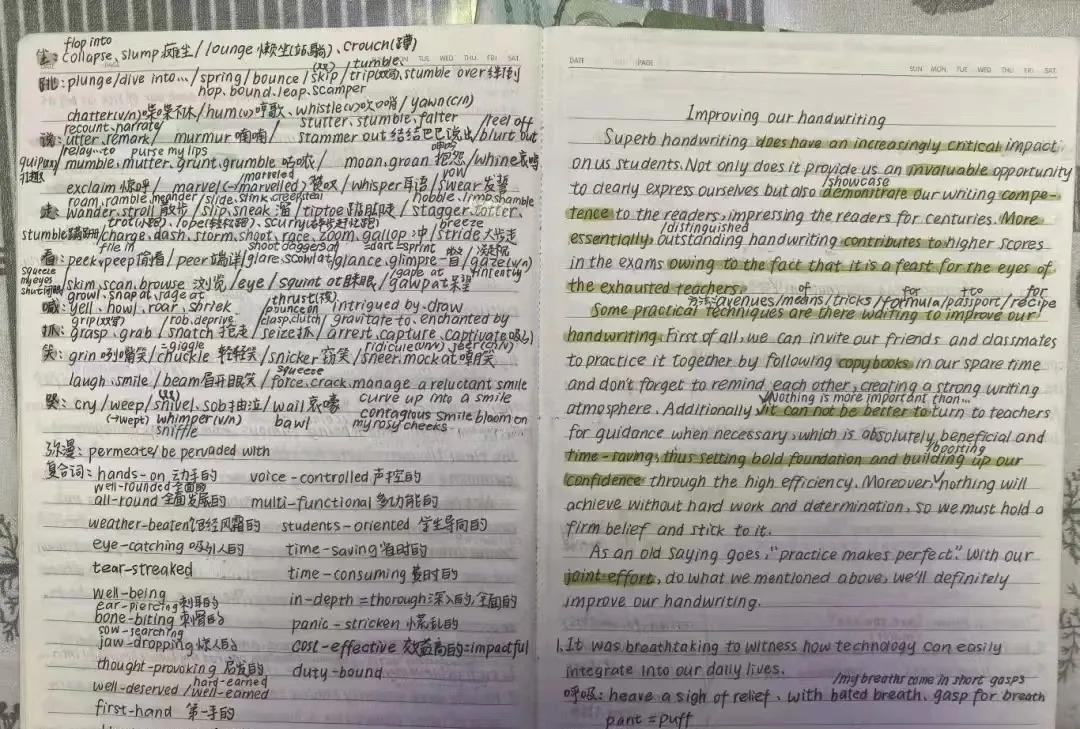 flop into
坐: collapse、slump 瘫坐 / lounge 懒坐(站、躺)、crouch(蹲)
THU FRI SAT
tumble
跳: plunge/dive into… / spring / bounce / skip / trip(绊倒)、stumble over 绊倒
hop、bound、leap、scamper
chatter(v/n)喋喋不休 / hum(v)哼歌、whistle(v)吹口哨 / yawn(v/n)
recount、narrate stutter、stumble、falter /feel off
说: utter、remark / murmur 喃喃 / stammer out 结结巴巴说出 / blurt out
relay…to purse my lips
mumble、mutter、grunt、grumble 咕哝 / moan、groan 抱怨 / whine 哀鸣
exclaim 惊呼 / marvel (→marvelled) 赞叹 / whisper 耳语 / swear 发誓
marveled vow
roam、ramble、meander / slide、slink、creep、steal hobble、limp、shamble
走: wander、stroll 散步 / slip、sneak 溜 / tiptoe 踮脚走 / stagger、totter、
breeze
stumble 蹒跚 / charge、dash、storm、shoot、race、zoom、gallop 冲 / stride 大步走
file in shoot daggers at dart sprint
看: peek、peep 偷看 / peer 端详 / glare、scowl at / glance、glimpse 一瞥 / gaze(v/n) 凝视
squeeze my eyes shut
gape at intently
/ skim、scan、browse 浏览 / eye / squint at 眯眼 / gawp at 呆望
growl、snap at、rage at
喊: yell、howl、roar、shriek intrigued by、draw
grip / rob、deprive clasp、clutch / gravitate to、enchanted by
抓: grasp、grab / snatch 抢走 / seize 抓 / arrest、capture、captivate 吸引
giggle ridicule(n/v) jeer(n/v)
笑: grin 咧嘴笑 / chuckle 轻轻笑 / snicker 窃笑 / sneer、mock at 嘲笑
squeeze
laugh、smile / beam 眉开眼笑 / force、crack、manage a reluctant smile
curve up into a smile
哭: cry / weep / snivel、sob 抽泣 / wail 哀嚎 contagious smile bloom on
(→wept) whimper(v/n) bawl my rosy cheeks
sniffle
弥漫: permeate / be pervaded with
复合词: hands-on 动手的 voice-controlled 声控的
well-rounded 全面的
all-round 全面发展的 multi-functional 多功能的
weather-beaten 饱经风霜的 students-oriented 学生导向的
eye-catching 吸引人的 time-saving 省时的
tear-streaked time-consuming 费时的
well-being in-depth = thorough 深入的,全面的
ear-piercing 刺耳的
bone-biting 刺骨的 panic-stricken 惊慌的
sow-searching
jaw-dropping 惊人的 cost-effective 效益高的=impactful
thought-provoking 启发的 duty-bound
hard-earned
well-deserved / well-earned
first-hand 第一手的
DATE PAGE SUN MON TUE WED THU FRI SAT
Improving our handwriting
Superb handwriting does have an increasingly critical impact
on us students. Not only does it provide us an invaluable opportunity
/showcase
to clearly express ourselves but also demonstrate our writing compe-
tence to the readers, impressing the readers for centuries. More
/distinguished
essentially, outstanding handwriting contributes to higher scores
in the exams owing to the fact that it is a feast for the eyes of
the exhausted teachers.
of for to for
方法: avenues/means/tricks/formula/passport/recipe
Some practical techniques are there waiting to improve our
handwriting. First of all, we can invite our friends and classmates
to practice it together by following copybooks in our spare time
and don't forget to remind each other, creating a strong writing
Nothing is more important than…
atmosphere. Additionally, it can not be better to turn to teachers
for guidance when necessary, which is absolutely beneficial and
/boosting
time-saving, thus setting bold foundation and building up our
confidence through the high efficiency. Moreover, nothing will
achieve without hard work and determination, so we must hold a
firm belief and stick to it.
As an old saying goes, "practice makes perfect." With our
joint effort, do what we mentioned above, we'll definitely
improve our handwriting.
1. It was breathtaking to witness how technology can easily
integrate into our daily lives.
/my breaths come in short gasps
呼吸: heave a sigh of relief、with bated breath、gasp for breath
pant = puff